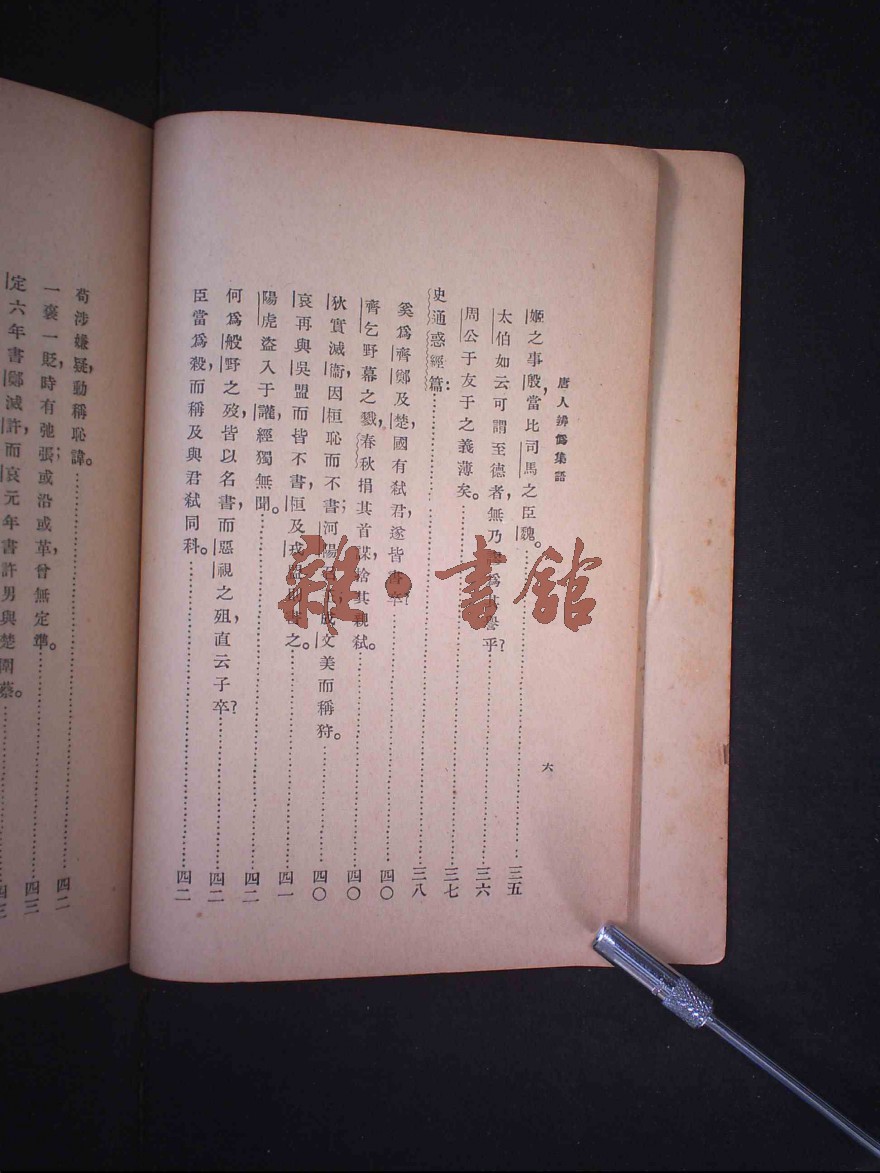 唐人辨僞集語
六
姬之事殷，當比司馬之臣魏。……三五
太伯如云可謂至德者，無乃 爲其譽乎？……三六
周公于友于之義薄矣。……三七
史通惑經篇：……三八
奚爲齊鄭及楚，國有弑君，遂皆書卒？……四〇
齊乞野幕之戮，春秋捐其首謀，捨其親弑。……四〇
狄實滅衞，因桓恥而不書；河陽召 ，成文美而稱狩。……四〇
哀再與吳盟，而皆不書，桓及戎盟則書之。……四一
陽虎盜入于讙，經獨無聞。……四二
何爲般野之歿，皆以名書，而惡視之殂，直云子卒？……四二
臣當爲殺，而稱及與君弑同科。……四二
苟涉嫌疑，動稱恥諱。……四二
一褒一貶，時有弛張；或沿或革，曾無定準。……四三
定六年書鄭滅許，而哀元年書許男與楚圍蔡。……四三
雜·書館